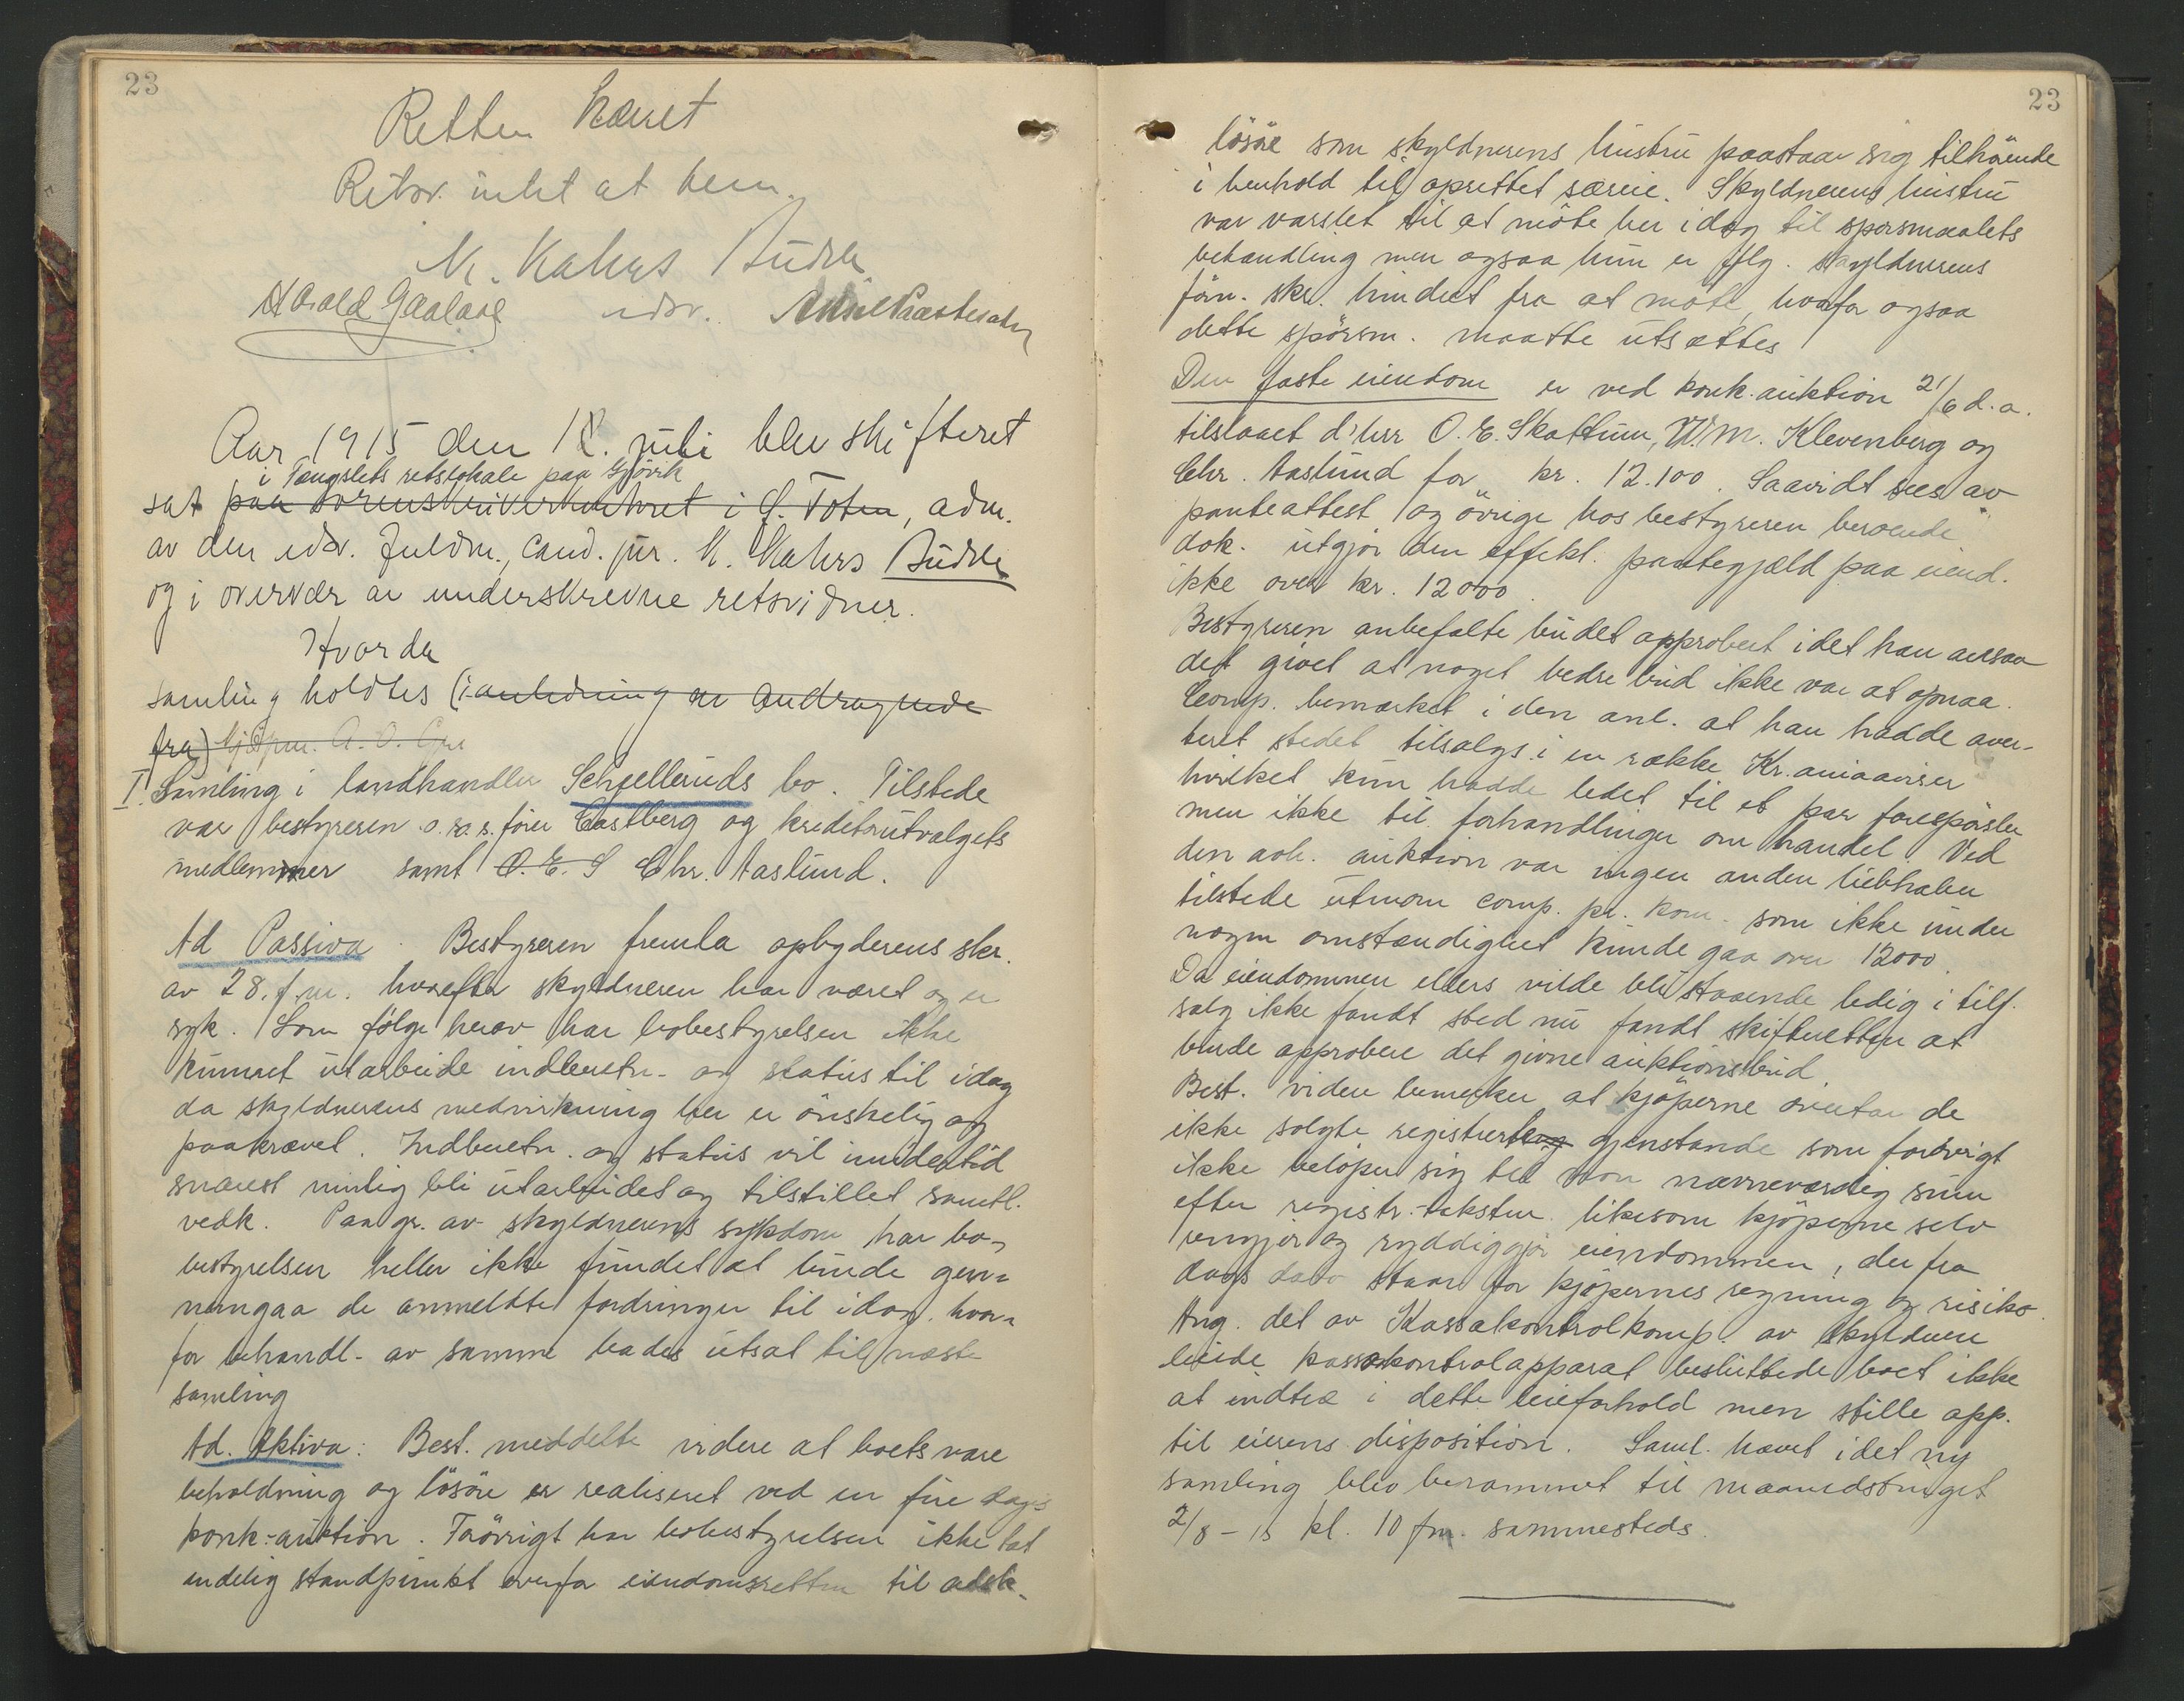 23
Retten hævet
Retsv. intet at bem.
N. Kahrs Budde
Harald Gaalaas edsv.
Aar 1915 den 12. juli blev skifteret
i Fængslets retslokale paa Gjövik
sat paa sorenskriverkontoret i Ö. Toten, adm.
av den edsv. fuldm., cand. jur. N. Kahrs Budde
og i overvær av underskrevne retsvidner.
Hvorda
samling holdtes (i anledning av andragende
fra) Kjöpm. A. O.
I. Samling i landhandler Schjelleruds bo. Tilstede
var bestyreren o.r.s.förer Castberg og kreditorutvalgets
medlemmer samt O. E. S Chr. Aaslund.
Ad Passiva. Bestyreren fremla opbyderens skr.
av 28. f.m. hvorefter skyldneren har været og er
syk. Som fölge herav har bobestyrelsen ikke
kunnet utarbeide indberetn. og status til idag
da skyldnerens medvirkning her er önskelig og
paakrævet. Indberetn. og status vil imidlertid
snarest mulig bli utarbeidet og tilstillet samtl.
vedk. Paa gr. av skyldnerens sykdom har bo-
bestyrelsen heller ikke fundet at burde gjen-
nemgaa de anmeldte fordringer til idag, hvor-
for behandl. av samme bades utsat til næste
samling
Ad. Aktiva: Best. meddelte videre at boets vare
beholdning og lösöre er realiseret ved en fire dages
konk.-auktion. Forövrigt har bobestyrelsen ikke tat
endelig standpunkt overfor eiendomsretten til adsk.
23
lösöre som skyldnerens hustru paastaar sig tilhörende
i henhold til oprettet særeie. Skyldnerens hustru
var varslet til at möte her idag til spörsmaalets
behandling men ogsaa hun er iflg. skyldnerens
förn. skr. hindret fra at möte, hvorfor ogsaa
dette spörsm. maatte utsættes
Den faste eiendom er ved konk.auktion 21/6 d.a.
tilslaaet d'hrr O. E. Skattum, W. M. Klevenberg og
Chr. Aaslund for kr. 12.100. Saavidt sees av
panteattest og övrige hos bestyreren beroende
dok. utgjör den effekt. pantegjæld paa eiend.
ikke over kr. 12000.
Bestyreren anbefalte budet approbert idet han ansaa
det givet at noget bedre bud ikke var at opnaa.
Comp. bemærket i den anl. at han hadde aver-
teret stedet tilsalgs i en række Kr.aniaaviser
hvilket kun hadde ledet til et par forespörsler
men ikke til forhandlinger om handel. Ved
den avh. auktion var ingen anden liebhaber
tilstede utenom comp. pr. kom. som ikke under
nogen omstændighet kunde gaa over 12000.
Da eiendommen ellers vilde bli staaende ledig i tilf.
salg ikke fandt sted nu fandt skifteretten at
burde approbere det givne auktionsbud.
Best. videre bemerker at kjöperne overtar de
ikke solgte registrerte gjenstande som forövrigt
ikke belöper sig til non nævneværdig sum
efter registr.-taksten likesom kjöperne selv
rengjör og ryddiggjör eiendommen, der fra
dags dato staar for kjöpernes regning og risiko.
Ang. det av Kassakontrolkomp. av skyldneren
leiede kassakontrolapparat besluttede boet ikke
at indtræ i dette leieforhold men stille app.
til eierens disposition. Saml. hævet idet ny
samling blev berammet til maanedstinget
2/8 - 15 kl. 10 fm. sammesteds.